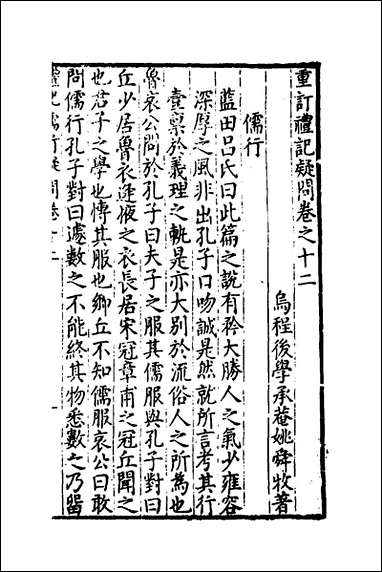 重訂禮記疑問卷之十二
烏程後學承菴姚舜牧著
儒行
藍田呂氏曰此篇之說有矜大勝人之氣少雍容
深厚之風非出孔子口吻誠是然就所言考其行
壹稟於義理之軌是亦大別於流俗人之所為也
魯哀公問於孔子曰夫子之服其儒服與孔子對曰
丘少居魯衣逢掖之衣長居宋冠章甫之冠丘聞之
也君子之學也博其服也鄉丘不知儒服哀公曰敢
問儒行孔子對曰遽數之不能終其物悉數之乃留
禮記儒行疑問卷十二